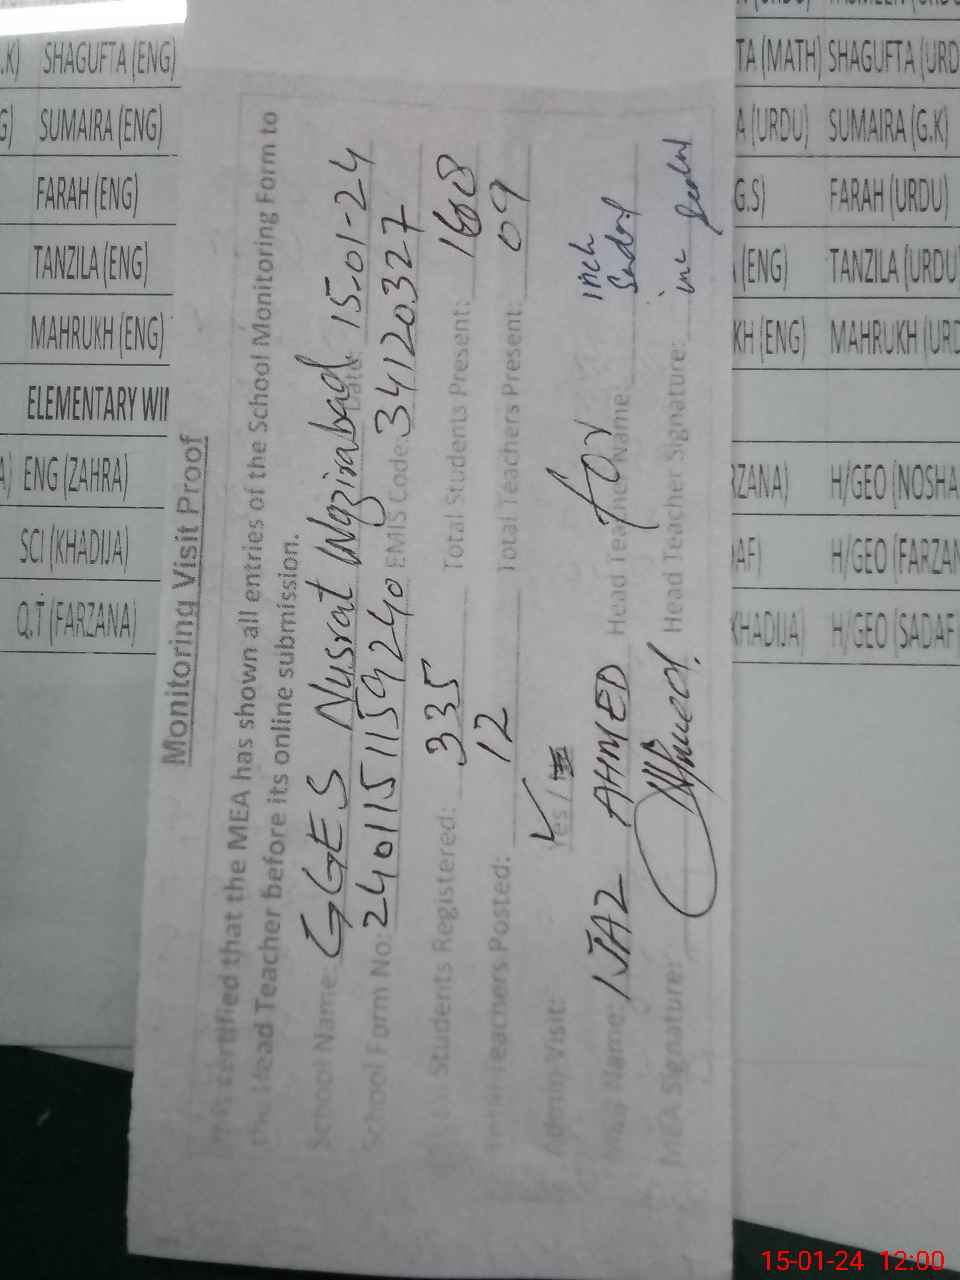 Monitoring Visit Proof
It is certified that the MEA has shown all entries of the School Monitoring Form to
the Head Teacher before its online submission.
School Name: GGES Nusrat Wazirabad Date: 15-01-24
School Form No: 240115115924240 EMIS Code: 34120327
Students Registered: 335 Total Students Present:
Total Teachers Posted: 12 Total Teachers Present: 09
Admin Visit: Yes /
MEA Name: IJAZ AHMED Head Teacher Name: for
MEA Signature: Head Teacher Signature:
.K) SHAGUFTA (ENG)
G) SUMAIRA (ENG)
FARAH (ENG)
TANZILA (ENG)
MAHRUKH (ENG)
ELEMENTARY WIN
A) ENG (ZAHRA)
SCI (KHADIJA)
Q.T (FARZANA)
TA (MATH) SHAGUFTA (URD
A (URDU) SUMAIRA (G.K)
G.S) FARAH (URDU)
(ENG) TANZILA (URDU
KH (ENG) MAHRUKH (URD
RZANA) H/GEO (NOSHA
AF) H/GEO (FARZAN
KHADIJA) H/GEO (SADAF)
15-01-24 12:00